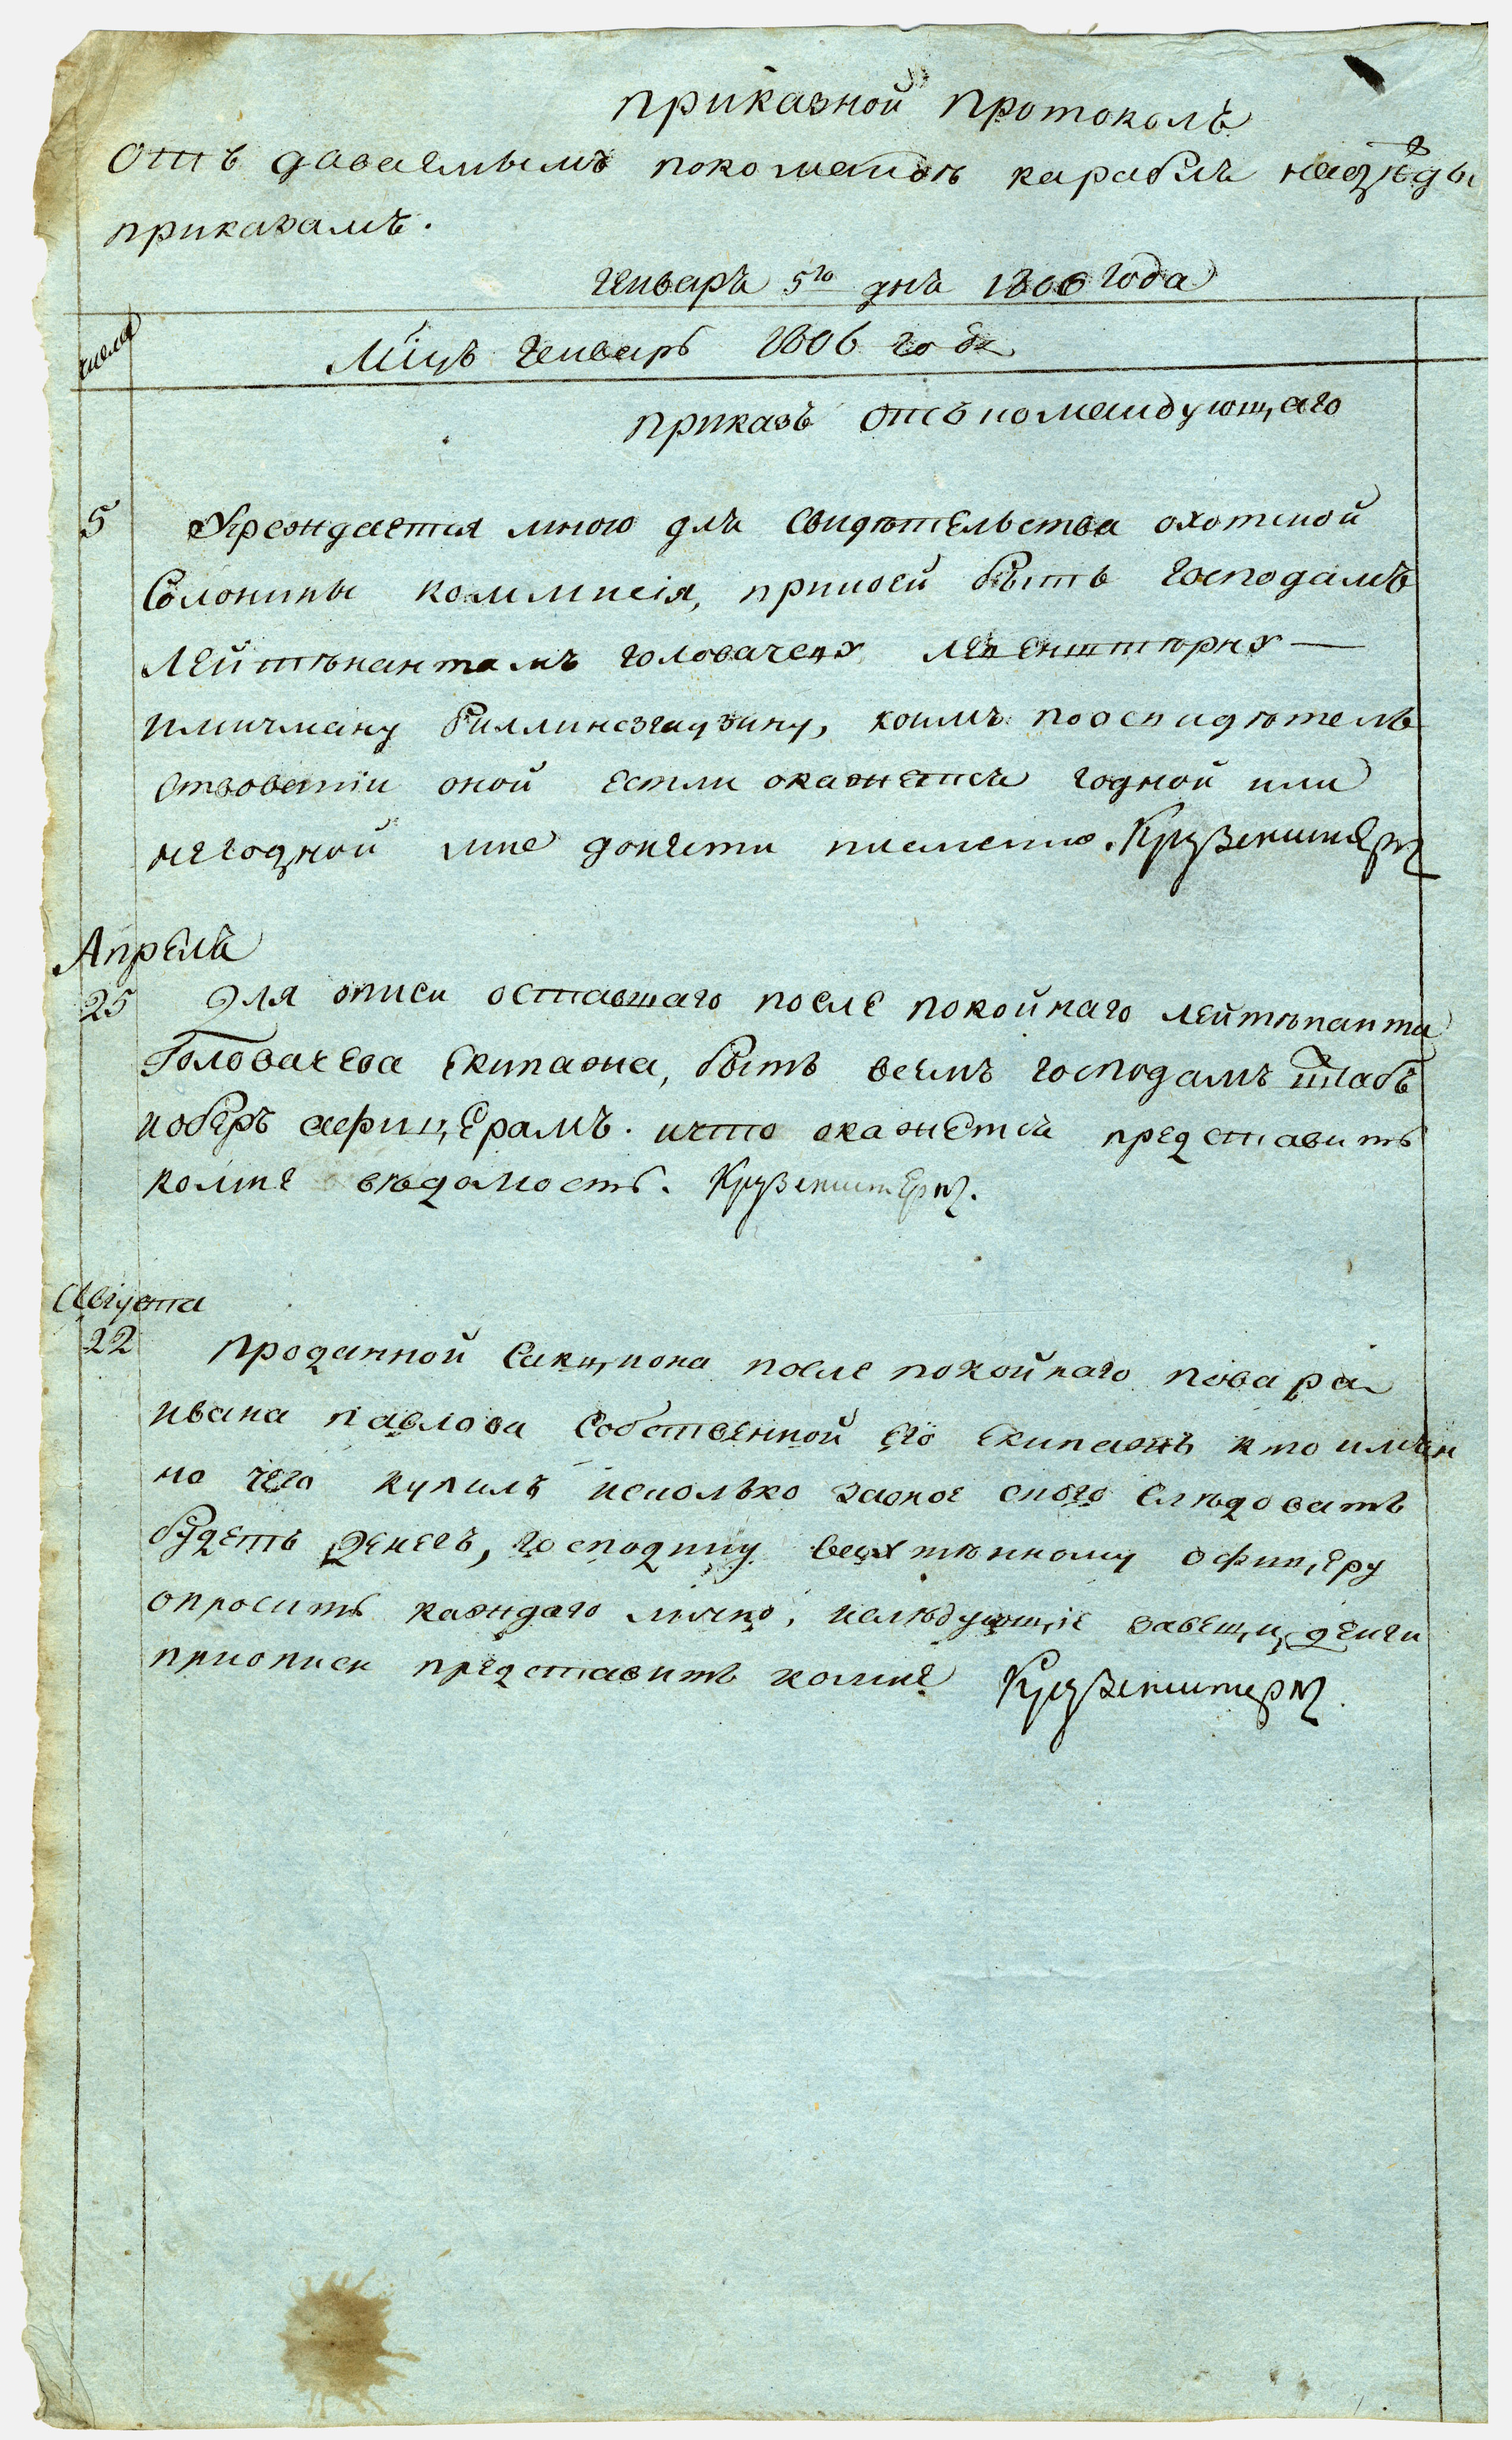 приказной протоколъ
отъ даваемымъ покомандѣ карабля надѣжды
приказамъ.
генваря 5го дня 1806 года
числа
Мцъ генварь 1806 года
приказъ отъ командующаго
5 Учреждается мною для свидѣтельства охотской
солонины коммисія, прикоей быть господамъ
лейтѣнантамъ головачеву левенштѣрну —
имичману биллинсгаузину, коимъ поосвидѣтель
ствованіи оной естли окажется годной или
негодной мне донести писменно. Крузенштернъ
Апреля
25 Для описи оставшаго после покойнаго лейтѣнанта
Головачева екипажа, быть всемъ господамъ штабъ
иоберъ афицерамъ. ичто окажется представить
комне вѣдомость. Крузенштернъ.
Августа
22 Проданной сакциона после покойнаго повара
ивана павлова собственной его екипажъ кто имян
но чего купилъ исколько закое съкого слѣдовать
будетъ денегъ, господину вахтѣнному офицеру
опросить каждаго лично, ислѣдующіе завещи денги
приописи представить комне Крузенштернъ.